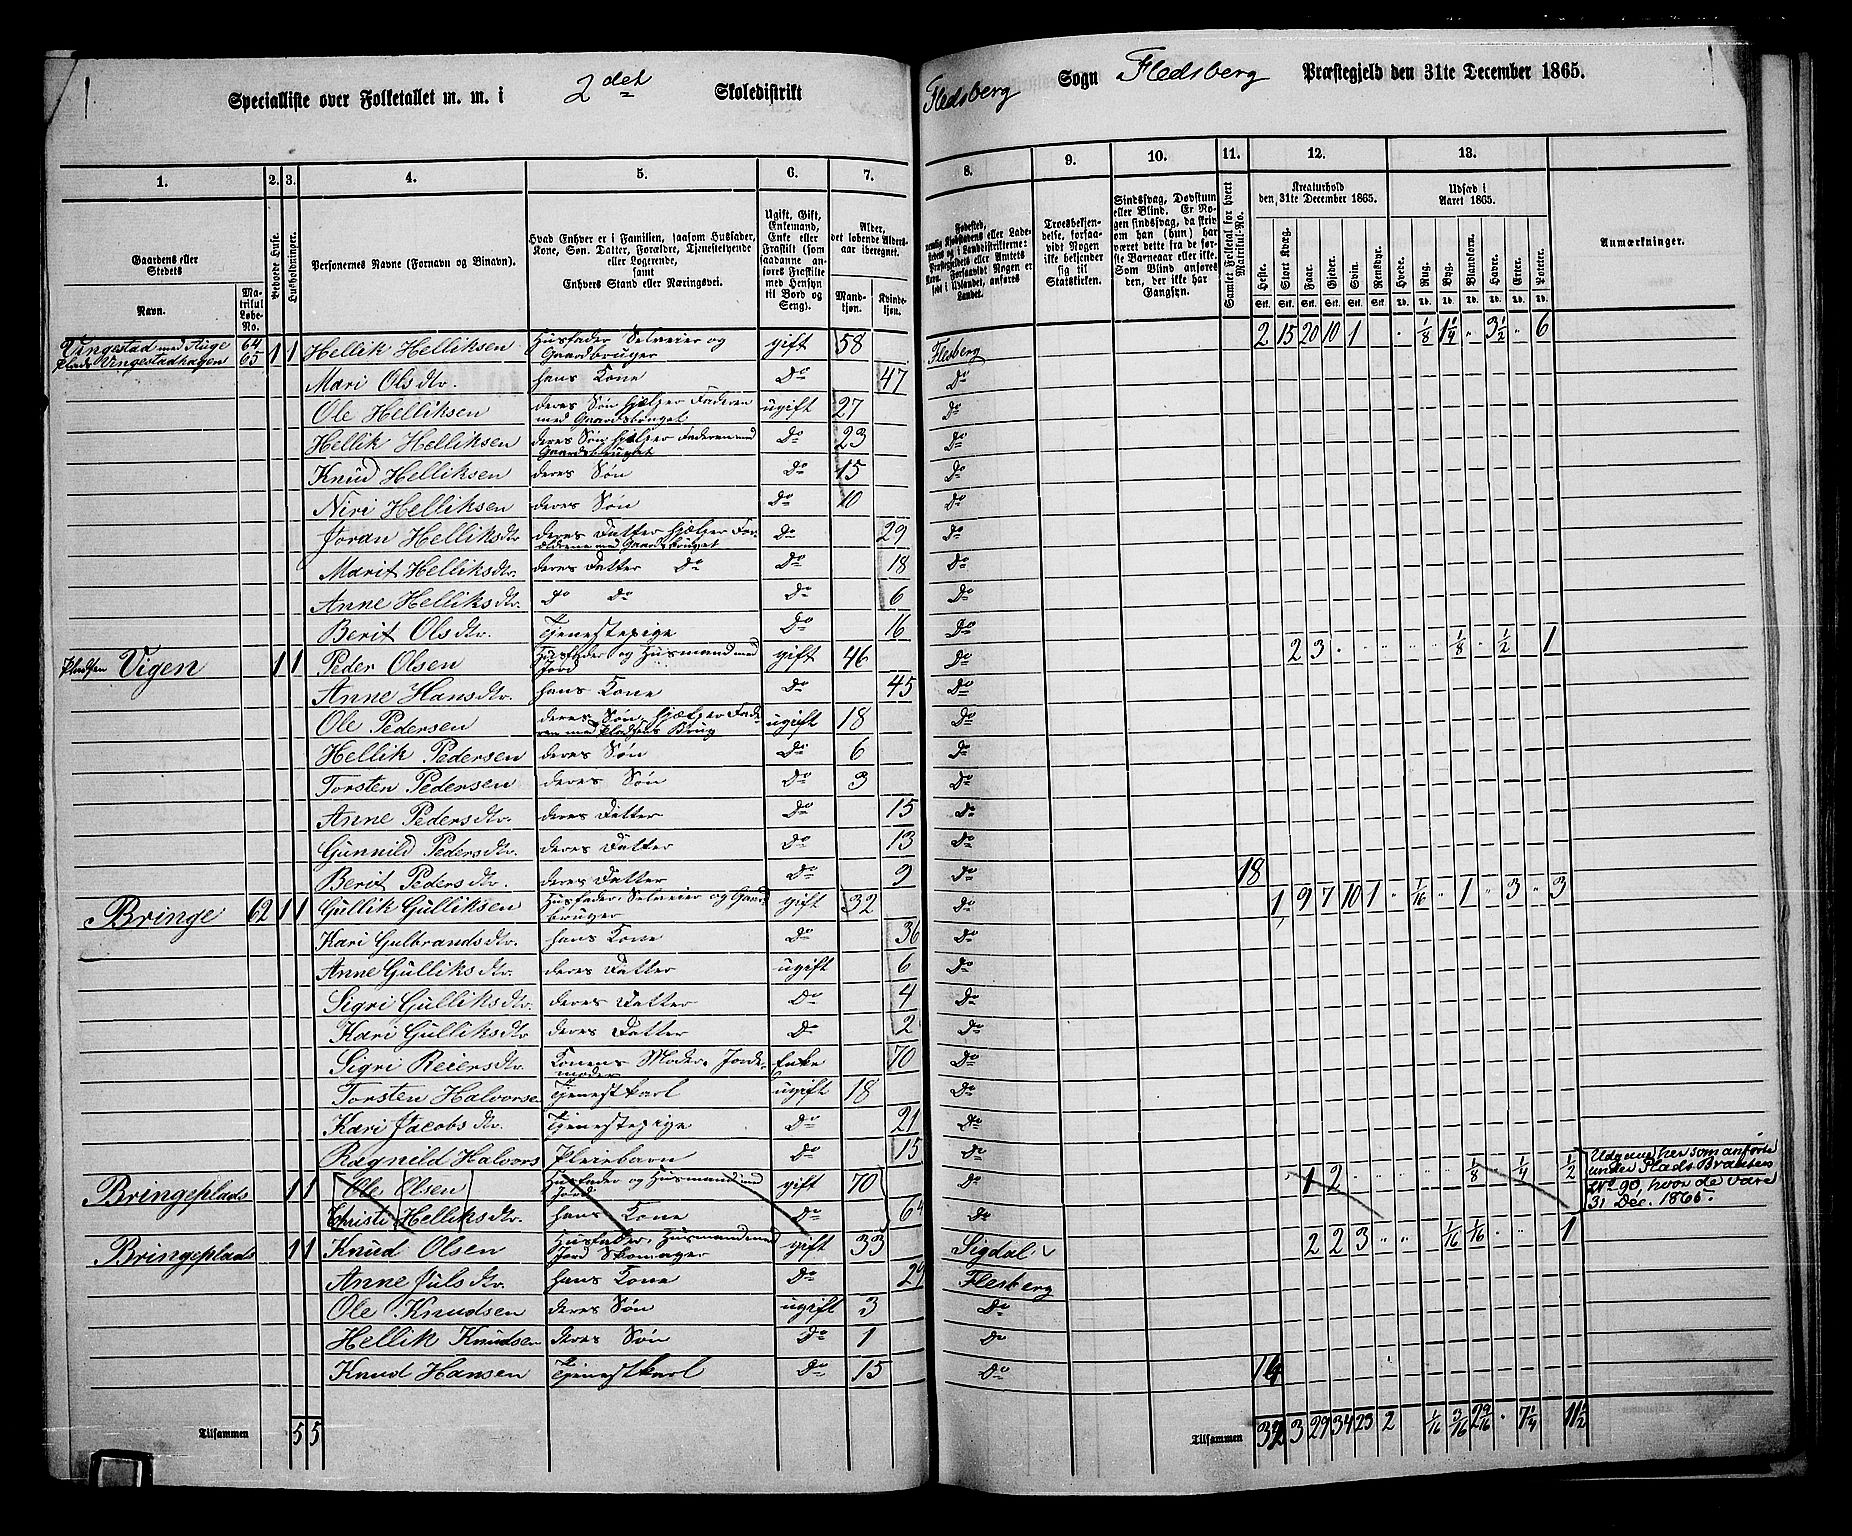 Specialliste over Folketallet m. m. i 2det Skoledistrikt
Fledsberg Sogn Fledsberg Præstegjeld den 31te December 1865.
1. 2. 3. 4. 5. 6. 7. 8. 9. 10. 11. 12. 13.
Gaardens eller Stedets
Navn.
Matrikul Løbe-No.
Beboede Huse.
Husholdninger.
Personernes Navne (Fornavn og Binavn).
Hvad Enhver er i Familien, saasom Husfader, Kone, Søn, Datter, Forældre, Tjenestetyende eller Logerende, samt Enhvers Stand eller Næringsvei.
Ugift, Gift, Enkemand, Enke eller Fraskilt (som saadanne anføres Fraskilte med Hensyn til Bord og Seng).
Alder, det løbende Aldersaar iberegnet.
Mandkjøn. Kvindekjøn.
Fødested,
Troesbekjendelse, forsaavidt Nogen ikke bekjender sig til Statskirken.
Sindssvag, Døvstum eller Blind. Er Nogen sindssvag, da skrives om han (hun) har været dette fra de første Barneaar eller ikke. Som Blind anføres den, der ikke har Gangsyn.
Samlet Folketal for hvert Matrikul-No.
Kreaturhold den 31te December 1865.
Heste. Stort Kvæg. Faar. Gjeder. Svin. Rensdyr.
Udsæd i Aaret 1865.
Hvede. Rug. Byg. Blandkorn. Havre. Erter. Poteter.
Anmærkninger.
Vingestad med Auge 64 Plads Vingestadhagen 65 1 1 Hellik Helliksen Husfader Selveier og Gaardbruger gift 58 Flesberg 2 15 20 10 1 " 1/8 1 1/4 " 3 1/2 " 6
Mari Olsdtr. hans Kone Do 47 Do
Ole Helliksen deres Søn hjælper Faderen med Gaardsbruget ugift 27 Do
Hellik Helliksen deres Søn hjelper Faderen med Gaardsbruget Do 23 Do
Knud Helliksen deres Søn Do 15 Do
Niri Helliksen deres Søn Do 10 Do
Joran Helliksdtr deres Datter hjælper Forældrene med Gaardsbruget Do 29 Do
Marit Helliksdtr. deres Datter Do Do 18 Do
Anne Helliksdtr. Do Do Do 6 Do
Berit Olsdtr. Tjenestepige Do 16 Do
Pladsen Vigen 1 1 Peder Olsen Husfader og Husmand med Jord gift 46 Do 2 3 1/8 " 1/2 1
Anne Hansdtr. hans Kone Do 45 Do
Ole Pedersen deres Søn, hjælper Faderen med Pladsens Brug ugift 18 Do
Hellik Pedersen deres Søn Do 6 Do
Torsten Pedersen deres Søn Do 3 Do
Anne Pedersdtr. deres Datter Do 15 Do
Gunnild Pedersdtr. deres Datter Do 13 Do
Berit Pedersdtr. deres Datter Do 9 Do 18
Bringe 62 1 1 Gullik Gulliksen Husfader, Selveier og Gaardbruger gift 32 Do 1 9 7 10 1 " 1/16 " 1 " 3 " 3
Kari Gulbrandsdtr. hans Kone Do 36 Do
Anne Gulliksdtr. deres Datter ugift 6 Do
Sigri Gulliksdtr. deres Datter Do 4 Do
Kari Gulliksdtr deres Datter Do 2 Do
Sigri Reiersdtr. Konens Moder. Jordemoder Enke 70 Do
Torsten Halvorse Tjenestkarl ugift 18 Do
Kari Jacobsdtr. Tjenestepige Do 21 Do
Ragnild Halvors Pleiebarn Do 15 Do
Bringeplads 1 1 Ole Olsen Husfader og Husmand med Jord gift 70 Do 1 2 1/8 " 1/4 1/2 Udgaaer her som anførte under Plads Braaten No 90, hvor de vare 31 Dec. 1865.
Christi Helliksdtr. hans Kone Do 64 Do
Bringeplads 1 1 Knud Olsen Husfader, Husmand med Jord Skomager gift 33 Sigdal 2 2 3 " " 1/16 1/16 " 1
Anne Julsdtr. hans Kone Do 29 Flesberg
Ole Knudsen deres Søn ugift 3 Do
Hellik Knudsen deres Søn Do 1 Do
Knud Hansen Tjenestkarl Do 15 Do 14
Tilsammen 5 5
Tilsammen 32 3 29 34 23 2 1/16 3/16 2 9/16 " 7 1/4 11 1/2